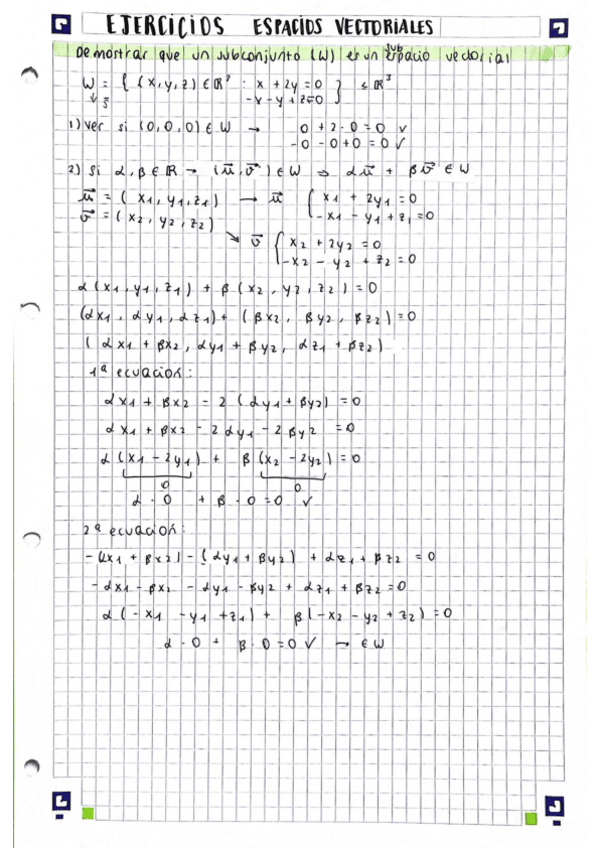 EJERCICIOS ESPACIOS VECTORIALES
Demostrar que un subconjunto (W) es un subespacio vectorial
W = { (x,y,z) ∈ ℝ³ : x + 2y = 0
-x - y + z = 0 } ≤ ℝ³
1) Ver si (0,0,0) ∈ W → 0 + 2·0 = 0 ✓
-0 - 0 + 0 = 0 ✓
2) Si α, β ∈ ℝ → (u⃗, v⃗) ∈ W ⇒ αu⃗ + βv⃗ ∈ W
u⃗ = (x1, y1, z1) → u⃗ { x1 + 2y1 = 0
-x1 - y1 + z1 = 0
v⃗ = (x2, y2, z2)
↘ v⃗ { x2 + 2y2 = 0
-x2 - y2 + z2 = 0
α(x1, y1, z1) + β(x2, y2, z2) = 0
(αx1, αy1, αz1) + (βx2, βy2, βz2) = 0
(αx1 + βx2, αy1 + βy2, αz1 + βz2)
1ª ecuación:
αx1 + βx2 - 2(αy1 + βy2) = 0
αx1 + βx2 - 2αy1 - 2βy2 = 0
α(x1 - 2y1) + β(x2 - 2y2) = 0
0 0
α·0 + β·0 = 0 ✓
2ª ecuación:
-(αx1 + βx2) - (αy1 + βy2) + αz1 + βz2 = 0
-αx1 - βx2 - αy1 - βy2 + αz1 + βz2 = 0
α(-x1 - y1 + z1) + β(-x2 - y2 + z2) = 0
α·0 + β·0 = 0 ✓ → ∈ W